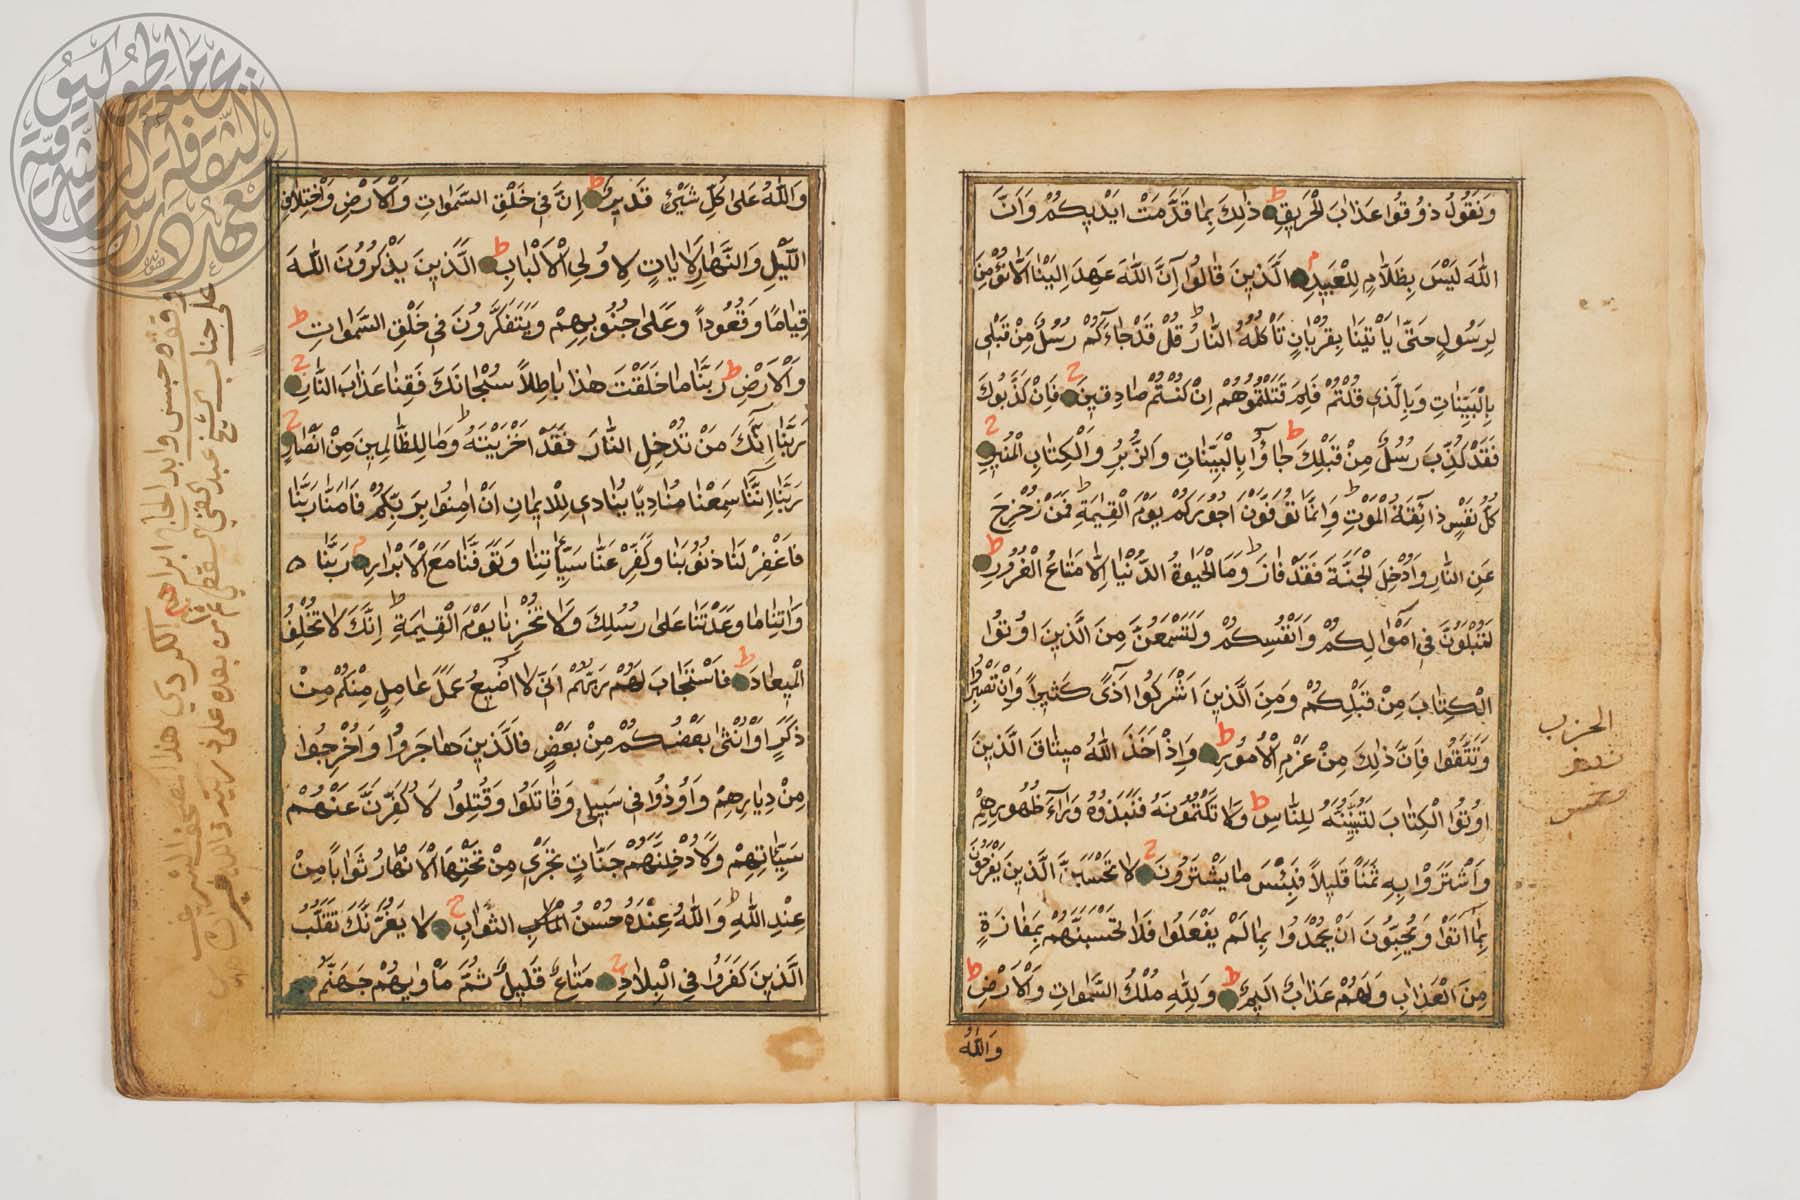 وَنَقُولُ ذوُقوُا عَذابَ الْحَرَيقِ ط ذٰلِكَ بِمٰا قَدَّمَتْ ايَدْيكُمْ وَاَنَّ
اللّٰهَ لَيْسَ بِظَلاّٰمٍ لِلْعَبيدِ م الَّذَينَ قٰالوُا اِنَّ اللّٰهَ عَهِدَ اِلَيْنٰا اَلاّٰ نُؤْمِنَ
لِرَسُولٍ حَتّىٰ يَأتْيَنٰا بِقُرْبٰانٍ تَأْكُلُهُ النّٰارُ ط قُلْ قَدْ جٰاءَكُمْ رُسُلٌ مِنْ قَبْلي
بِالْبَيِّنٰاتِ وَبِالَّذي قُلْتُمْ فَلِمَ قَتَلْتُمُوُهُمْ اِنْ كُنْتُمْ صٰادِقينَ ح فَاِنْ كَذَّبُوكَ
فَقَدْ كُذِّبَ رُسُلٌ مِنْ قَبْلِكَ ط جٰاؤُا بِالْبَيِّنٰاتِ وَالزُّبُرِ وَالْكِتٰابِ الْمُنيرِ ح
كُلُّ نَفْسٍ ذٰائِقَةُ الْمَوْتِ ط وَاِنَّمٰا تُوَفَّوْنَ اُجُورَكُمْ يَوْمَ الْقِيٰمَةِ ط فَمَنْ زُحْزِحَ
عَنِ النّٰارِ وَاُدْخِلَ الْجَنَّةَ فَقَدْ فٰازَ ط وَمَا الْحَيٰوةُ الدُّنْيٰا اِلّٰا مَتٰاعُ الْغُرُورِ ط
لَتُبْلَوُنَّ في اَمْوٰالِكُمْ وَاَنْفُسِكُمْ وَلَتَسْمَعُنَّ مِنَ الَّذَينَ اوُتُوا
الْكِتٰابَ مِنْ قَبْلِكُمْ وَمِنَ الَّذَينَ اَشْرَكُوا اَذًى كَثيراً وَاِنْ تَصْبِرُوا
وَتَتَّقُوا فَاِنَّ ذٰلِكَ مِنْ عَزْمِ الْاُمُورِ ط وَاِذْ اَخَذَ اللّٰهُ ميثٰاقَ الَّذينَ
اوُتُوا الْكِتٰابَ لَتُبَيِّنُنَّهُ لِلنّٰاسِ ط وَلٰا تَكْتُمُونَهُ فَنَبَذُوهُ وَرٰاءَ ظُهُورِهِمْ
وَاشْتَرَوْا بِهِ ثَمَناً قَليلاً فَبِئْسَ مٰا يَشْتَرُونَ ح لٰا تَحْسَبَنَّ الَّذينَ يَفْرَحُونَ
بِمٰا اَتَوْا وَيُحِبُّونَ اَنْ يُحْمَدُوا بِمٰا لَمْ يَفْعَلُوا فَلٰا تَحْسَبَنَّهُمْ بِمَفٰازَةٍ
مِنَ الْعَذٰابِ وَلَهُمْ عَذٰابٌ اَليمٌ ط وَلِلّٰهِ مُلْكُ السَّمٰوٰاتِ وَالْاَرْضِ ط
وَاللّٰهُ
الحزب
وَاللّٰهُ عَلىٰ كُلِّ شَيْئٍ قَديرٌ ط اِنَّ في خَلْقِ السَّمٰوٰاتِ وَالْاَرْضِ وَاخْتِلافِ
اللَّيْلِ وَالنَّهٰارِ لَاٰيٰاتٍ لِاوُلِي الْاَلْبٰابِ ط الَّذينَ يَذْكُرُونَ اللّٰهَ
قِيٰامًا وَقُعُوداً وَعَلىٰ جُنُوبِهِمْ وَيَتَفَكَّرُونَ في خَلْقِ السَّمٰوٰاتِ ط
وَالْاَرْضِ ط رَبَّنٰا مٰا خَلَقْتَ هٰذٰا بٰاطِلاً سُبْحٰانَكَ فَقِنٰا عَذٰابَ النّٰارِ ح
رَبَّنٰا اِنَّكَ مَنْ تُدْخِلِ النّٰارَ فَقَدْ اَخْزَيْتَهُ ط وَمٰا لِلظّٰالِمينَ مِنْ اَنْصٰارٍ ح
رَبَّنٰا اِنَّنٰا سَمِعْنٰا مُنٰادِيًا يُنٰادي لِلْايمٰانِ اَنْ اٰمِنُوا بِرَبِّكُمْ فَاٰمَنّٰا رَبَّنٰا
فَاغْفِرْ لَنٰا ذنُوُبَنٰا وَكَفِّرْ عَنّٰا سَيِّئٰاتِنٰا وَتَوَفَّنٰا مَعَ الْاَبْرٰارِ م رَبَّنٰا ه
وَاٰتِنٰا مٰا وَعَدْتَنٰا عَلىٰ رُسُلِكَ وَلٰا تُخْزِنٰا يَوْمَ الْقِيٰمَةِ ط اِنَّكَ لٰا تُخْلِفُ
الْميعٰادَ ط فَاسْتَجٰابَ لَهُمْ رَبُّهُمْ اَنّي لٰا اُضيعُ عَمَلَ عٰامِلٍ مِنْكُمْ مِنْ
ذَكَرٍ اَوْ اُنْثىٰ بَعْضُكُمْ مِنْ بَعْضٍ فَالَّذينَ هٰاجَرُوا وَاُخْرِجُوا
مِنْ دِيٰارِهِمْ وَاُوذُوا في سَبيلي وَقٰاتَلُوا وَقُتِلُوا لَاُكَفِّرَنَّ عَنْهُمْ
سَيِّئٰاتِهِمْ وَلَاُدْخِلَنَّهُمْ جَنّٰاتٍ تَجْري مِنْ تَحْتِهَا الْاَنْهٰارُ ثَوٰابًا مِنْ
عِنْدِ اللّٰهِ ط وَاللّٰهُ عِنْدَهُ حُسْنُ الثَّوٰابِ ح لٰا يَغُرَّنَّكَ تَقَلُّبُ
الَّذينَ كَفَرُوا فِي الْبِلٰادِ ح مَتٰاعٌ قَليلٌ ثُمَّ مَأْوٰيهُمْ جَهَنَّمُ
وقفه حبس وابد الحاج ابراهيم الكردي هذا المصحف الشريف
على جناب الشيخ عبد